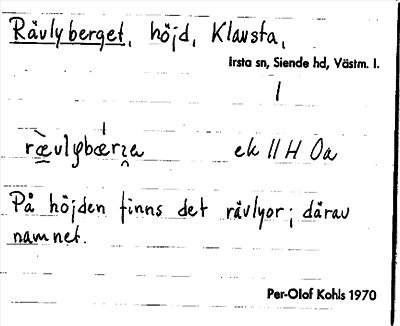 Rävlyberget, höjd, Klavsta,
Irsta sn, Siende hd, Västm. l.
1
ek 11 H Oa
På höjden finns det rävlyor; därav
namnet.
Per-Olof Kohls 1970